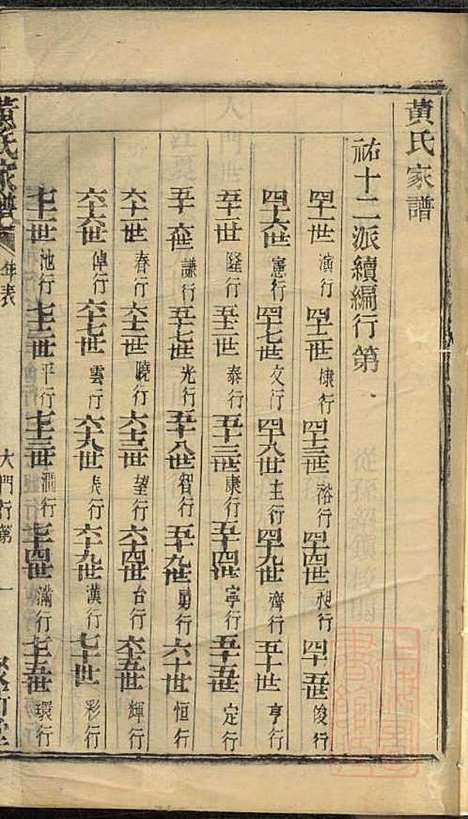 黃氏家譜
祐十二派續編行第
四十一世演行 四十二世棣行 四十三世裕行 四十四世昶行 四十五世俊行
四十六世憲行 四十七世文行 四十八世主行 四十九世齊行 五十世亨行
五十一世隆行 五十二世泰行 五十三世康行 五十四世寧行 五十五世定行
五十六世謙行 五十七世光行 五十八世智行 五十九世勇行 六十世恒行
六十一世春行 六十二世曉行 六十三世望行 六十四世台行 六十五世輝行
六十六世倬行 六十七世雲行 六十八世長行 六十九世漢行 七十世彩行
七十一世池行 七十二世平行 七十三世澗行 七十四世滿行 七十五世環行
黃氏家譜 年表 大門行第 一